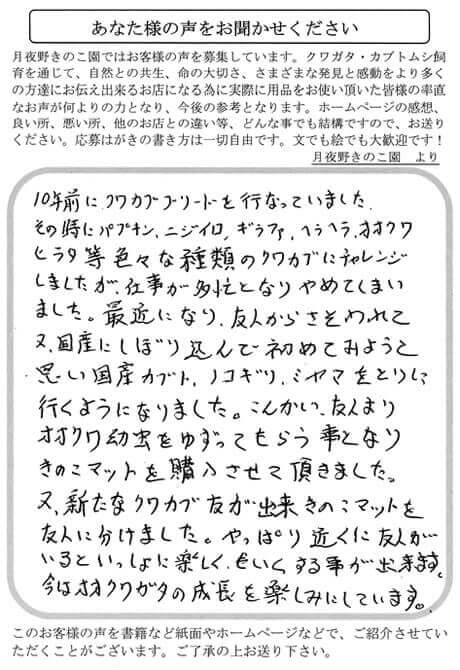 あなた様の声をお聞かせください
月夜野きのこ園ではお客様の声を募集しています。クワガタ・カブトムシ飼
育を通じて、自然との共生、命の大切さ、さまざまな発見と感動をより多く
の方達にお伝え出来るお店になる為に実際に用品をお使い頂いた皆様の率直
なお声が何よりの力となり、今後の参考となります。ホームページの感想、
良い所、悪い所、他のお店との違い等、どんな事でも結構ですので、お送り
ください。応募はがきの書き方は一切自由です。文でも絵でも大歓迎です！
月夜野きのこ園　より
10年前にクワカブブリードを行なっていました。
その時にパプキン、ニジイロ、ギラファ、ヘラヘラ、オオクワ
ヒラタ等色々な種類のクワカブにチャレンジ
しましたが、仕事が多忙となりやめてしまい
ました。最近になり、友人からさそわれて
又、国産にしぼり込んで初めてみようと
思い国産カブト、ノコギリ、ミヤマをとりに
行くようになりました。こんかい、友人より
オオクワ幼虫をゆずってもらう事となり
きのこマットを購入させて頂きました。
又、新たなクワカブ友が出来きのこマットを
友人に分けました。やっぱり近くに友人が
いるといっしょに楽しく
する事が出来ます。
今はオオクワガタの成長を楽しみにしています。
このお客様の声を書籍など紙面やホームページなどで、ご紹介させてい
ただくことがございます。ご了承の上お送り下さい。